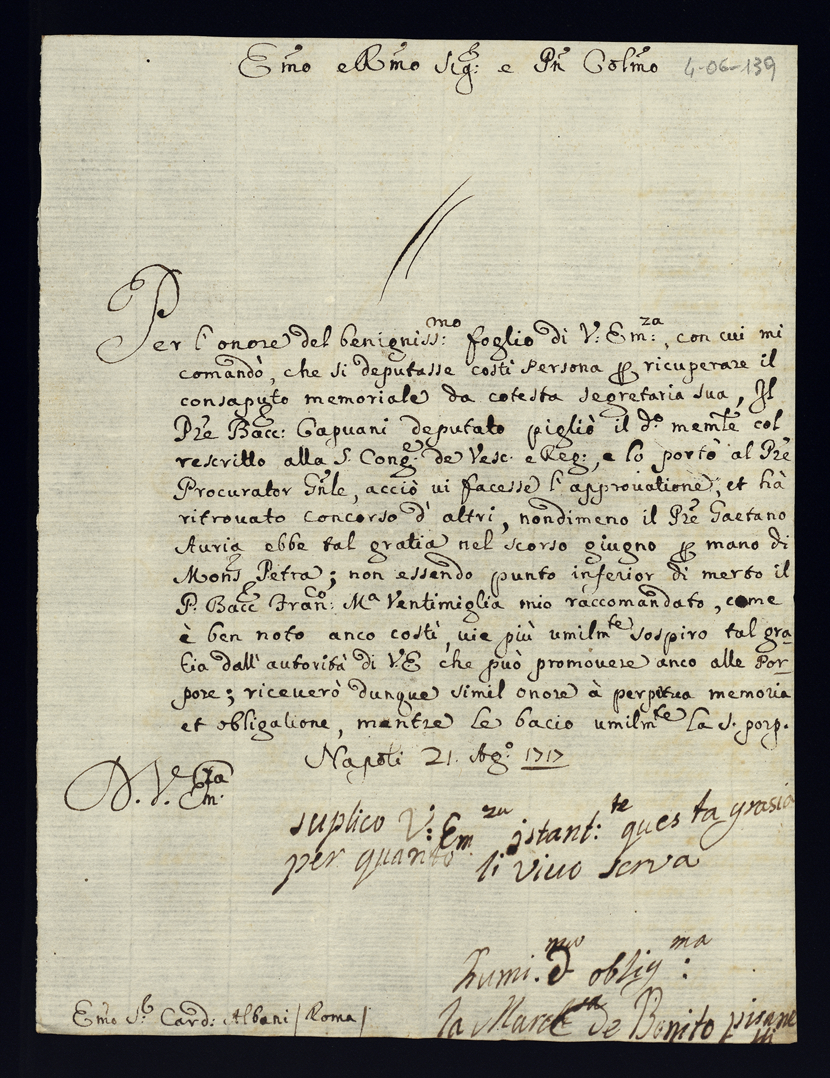 Emo e Rmo Sig: e Pn Colmo 4-06-139
Per l'onore del benigniss:mo foglio di V: Em:za, con cui mi
comandò, che si deputasse costì Persona per ricuperare il
consaputo memoriale da cotesta segretaria sua, Il
Pre Bacc: Capuani deputato pigliò il do memle col
rescritto alla S. Cong.e de Vesc. e Reg:, e lo portò al Pre
Procurator Gnle, acciò vi facesse l'approvatione, et hà
ritrovato concorso d'altri, nondimeno il Pre Gaetano
Auria ebbe tal gratia nel scorso giugno per mano di
Mons Petra; non essendo punto inferior di merto il
P. Bacc Fran:co Ma Ventimiglia mio raccomandato, come
è ben noto anco costì, vie più umilmte sospiro tal gra-
tia dall'autorità di VE che può promovere anco alle Por-
pore; riceverò dunque simil onore à perpetua memoria
et obligatione, mentre le bacio umilmte la S. porp.
Napoli 21. Ago 1717
D. V. Em.za
suplico V: Em za istant:te questa grasia
per quanto li vivo serva
humi.ma d oblig:ma
la March.sa de Bonito
Emo Sr Card: Albani / Roma /